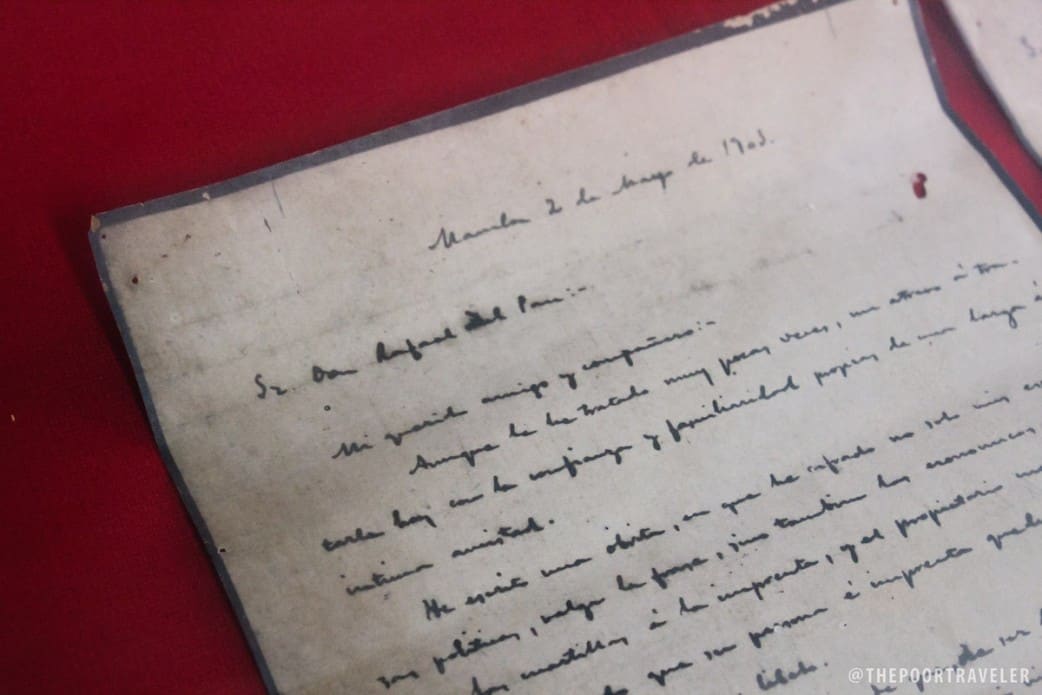 Manila 2 de Mayo de 1903.
Sr. Don Rafael del Pan:-
Mi querido amigo y compañero:-
Aunque le he tratado muy pocas veces, me atrevo á tra-
tarle hoy con la confianza y familiaridad propias de una larga é
íntima amistad.
He escrito una obrita, en que he cifrado no solo mis
políticas, valga la frase, sino tambien las economicas
á la imprenta, y el propietario
que su persona é imprenta
@THEPOORTRAVELER